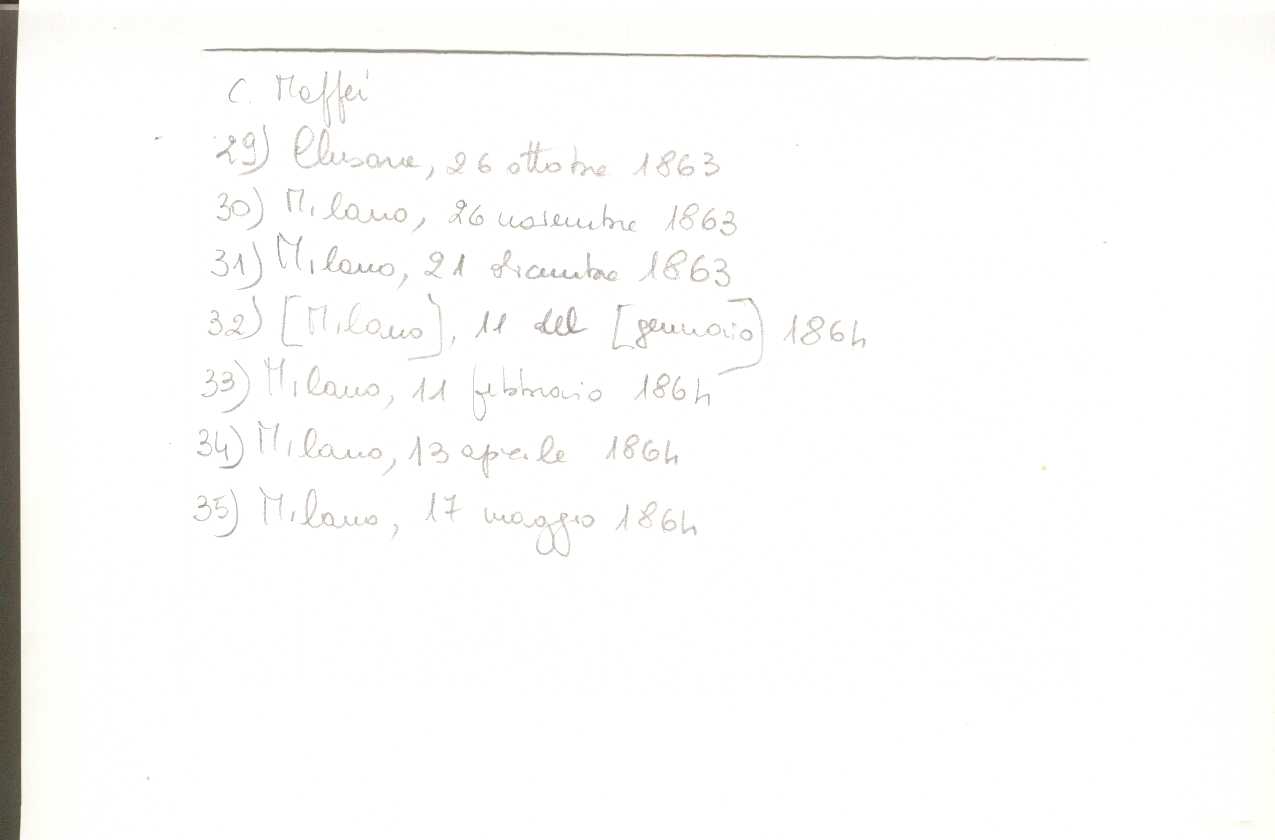 C. Maffei
29) Clusone, 26 ottobre 1863
30) Milano, 26 novembre 1863
31) Milano, 21 dicembre 1863
32) [Milano], 11 del [gennaio] 1864
33) Milano, 11 febbraio 1864
34) Milano, 13 aprile 1864
35) Milano, 17 maggio 1864